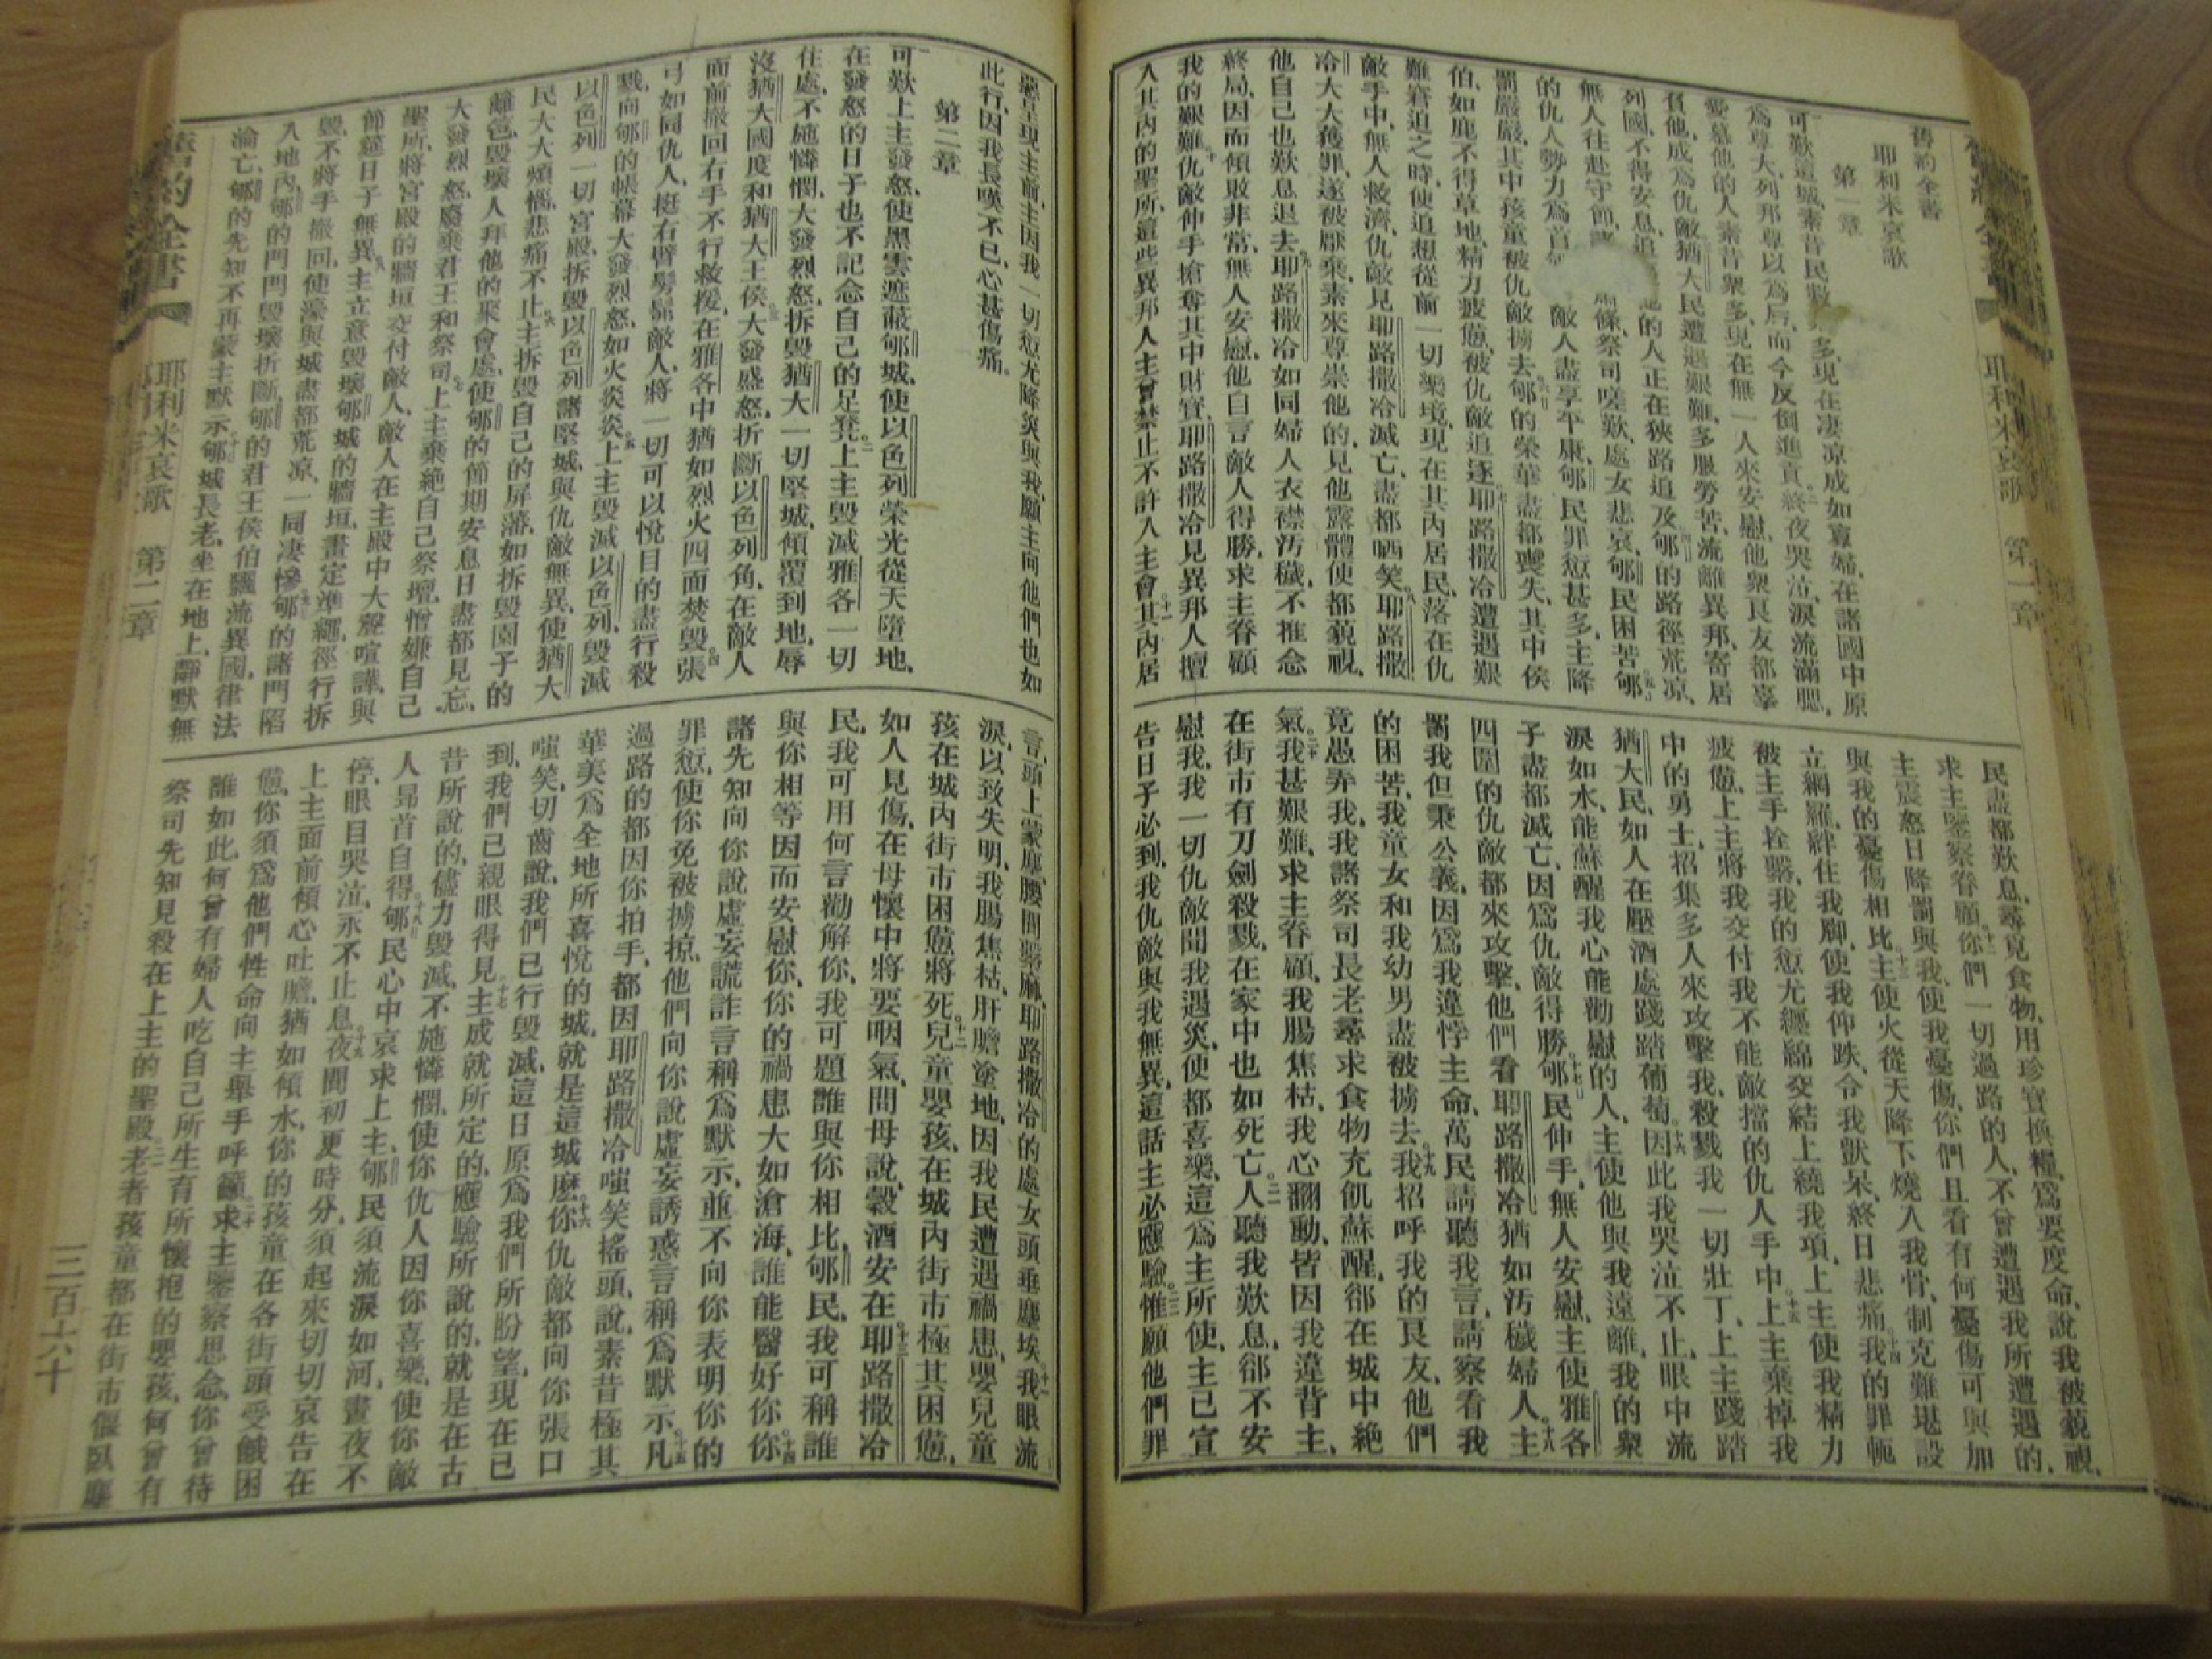 舊約全書
耶利米哀歌
第一章
可歎這城、素昔民數 多、現在凄凉成如寡婦、在諸國中原
爲尊大、列邦尊以爲后、而今反倒進貢、二終夜哭泣、淚流滿腮、
愛慕他的人、素昔衆多、現在無一人來安慰、他衆良友都辜
負他、成爲仇敵、猶大民遭遇艱難、多服勞苦、流離異邦、寄居
列國、不得安息、追 他的人正在狹路追及、四郇的路徑荒凉、
無人往赴守節、 條、祭司嗟歎、處女悲哀、郇民困苦、五郇
的仇人勢力爲首、 敵人盡享平康、郇民罪愆甚多、主降
罰嚴嚴、其中孩童被仇敵擄去、六郇的榮華盡都喪失、其中侯
伯、如鹿不得草地、精力疲憊、被仇敵追逐、七耶路撒冷遭遇艱
難窘迫之時、便追想從前一切樂境、現在其內居民、落在仇
敵手中、無人救濟、仇敵見耶路撒冷滅亡、盡都哂笑、八耶路撒
冷大大獲罪、遂被厭棄、素來尊崇他的、見他露體、便都藐視、
他自己也歎息退去、九耶路撒冷如同婦人衣襟汚穢、不推念
終局、因而傾敗非常、無人安慰、他自言敵人得勝、求主眷顧
我的艱難、十仇敵伸手搶奪其中財寶、耶路撒冷見異邦人擅
入其內的聖所、這些異邦人主曾禁止不許入主會、十一其內居
民盡都歎息、尋覓食物、用珍寶換糧、爲要度命、說我被藐視、
求主鑒察眷顧、十二你們一切過路的人、不曾遭遇我所遭遇的、
主震怒日降罰與我、使我憂傷、你們且看有何憂傷可與加
與我的憂傷相比、十三主使火從天降下、燒入我骨、制克難堪、設
立網羅、絆住我脚、使我仰跌、令我獸呆、終日悲痛、十四我的罪軛
被主手拴繫、我的愆尤纒綿交結上繞我項、上主使我精力
疲憊、上主將我交付我不能敵擋的仇人手中、十五上主棄掉我
中的勇士、招集多人來攻擊我、殺戮我一切壯丁、上主踐踏
猶大民、如人在壓酒處踐踏葡萄、十六因此我哭泣不止、眼中流
淚如水、能蘇醒我心能勸慰的人、主使他與我遠離、我的衆
子盡都滅亡、因爲仇敵得勝、十七郇民伸手、無人安慰、主使雅各
四圍的仇敵都來攻擊、他們看耶路撒冷猶如汚穢婦人、十八主
罰我但秉公義、因爲我違悖主命、萬民請聽我言、請察看我
的困苦、我童女和我幼男盡被擄去、十九我招呼我的良友、他們
竟愚弄我、我諸祭司長老尋求食物充飢蘇醒、卻在城中絶
氣、二十我甚艱難、求主眷顧、我腸焦枯、我心翻動、皆因我違背主、
在街市有刀劍殺戮、在家中也如死亡、二一人聽我歎息、卻不安
慰我、我一切仇敵聞我遇災、便都喜樂、這爲主所使、主已宣
告日子必到、我仇敵與我無異、這話主必應驗、二二惟願他們罪
愆呈現主前、主因我一切愆尤降災與我、願主向他們也如
此行、因我長嘆不已、心甚傷痛。
第二章
一可歎上主發怒、使黑雲遮蔽郇城、使以色列榮光從天墮地、
在發怒的日子也不記念自己的足凳、二上主毀滅雅各一切
住處、不施憐憫、大發烈怒、拆毀猶大一切堅城、傾覆到地、辱
沒猶大國度和猶大王侯、三大發盛怒、折斷以色列角、在敵人
面前撤回右手不行救援、在雅各中猶如烈火四面焚毀、四張
弓如同仇人、挺右臂努髴敵人、將一切可以悅目的盡行殺
戮、向郇的帳幕大發烈怒、如火炎炎、五上主毀滅以色列、毀滅
以色列一切宮殿、拆毀以色列諸堅城、與仇敵無異、使猶大
民大大煩惱、悲痛不止、六主拆毀自己的屏藩、如拆毀園子的
籬笆、毀壞人拜他的聚會處、使郇的節期安息日盡都見忘、
大發烈怒、廢棄君王和祭司、七上主棄絶自己祭壇、憎嫌自己
聖所、將宮殿的牆垣交付敵人、敵人在主殿中大聲喧譁、與
節筵日子無異、八主立意毀壞郇城的牆垣、畫定準繩、徑行拆
毀、不將手撤回、使濠與城盡都荒凉、一同凄慘、九郇的諸門陷
入地內、郇的門閂毀壞折斷、郇的君王侯伯飄流異國、律法
淪亡、郇的先知不再蒙主默示、十郇城長老、坐在地上、靜默無
言、頭上蒙塵、腰間繫麻、耶路撒冷的處女頭垂塵埃、十一我眼流
淚、以致失明、我腸焦枯、肝膽塗地、因我民遭遇禍患、嬰兒童
孩在城內街市困憊將死、十二兒童嬰孩、在城內街市極其困憊、
如人見傷、在母懷中將要咽氣、問母說、穀酒安在、十三耶路撒冷
民、我可用何言勸解你、我可題誰與你相比、郇民、我可稱誰
與你相等、因而安慰你、你的禍患大如滄海、誰能醫好你、十四你
諸先知向你說虛妄謊詐言稱爲默示、並不向你表明你的
罪愆、使你免被擄掠、他們向你說虛妄誘惑言稱爲默示、十五凡
過路的都因你拍手、都因耶路撒冷嗤笑搖頭、說、素昔極其
華美、爲全地所喜悅的城、就是這城麽、十六你仇敵都向你張口
嗤笑、切齒說、我們已行毀滅、這日原爲我們所盼望、現在已
到、我們已親眼得見、十七主成就所定的、應驗所說的、就是在古
昔所說的、儘力毀滅、不施憐憫、使你仇人因你喜樂、使你敵
人昂首自得、十八郇民心中哀求上主、郇民須流淚如河、晝夜不
停、眼目哭泣、永不止息、十九夜間初更時分、須起來切切哀告、在
上主面前傾心吐膽、猶如傾水、你的孩童在各街頭受餓困
憊、你須爲他們性命向主舉手呼籲、二十求主鑒察思念、你曾待
誰如此、何曾有婦人吃自己所生育所懷抱的嬰孩、何曾有
祭司先知見殺在上主的聖殿、二一老者孩童都在街市偃臥塵
耶利米哀歌 第一章
舊約全書
耶利米哀歌 第二章
三百六十